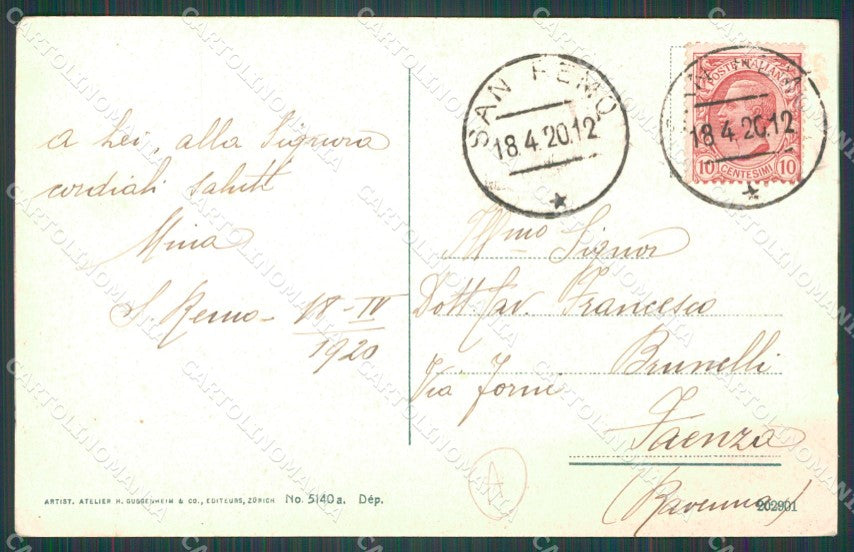 A Lei, alla Signora
cordiali saluti
Mina
S. Remo - 18-IV
1920
ARTIST. ATELIER H. GUGGENHEIM & CO., EDITEURS, ZÜRICH No. 5140a. Dép.
SAN REMO
18.4.20.12
POSTE ITALIANE
18.4.20.12
10 CENTESIMI 10
Ill mo Signor
Dott Cav. Francesco
Brunelli
Via Forni
Faenza
(Ravenna)
202901
CARTOLINOMANIA